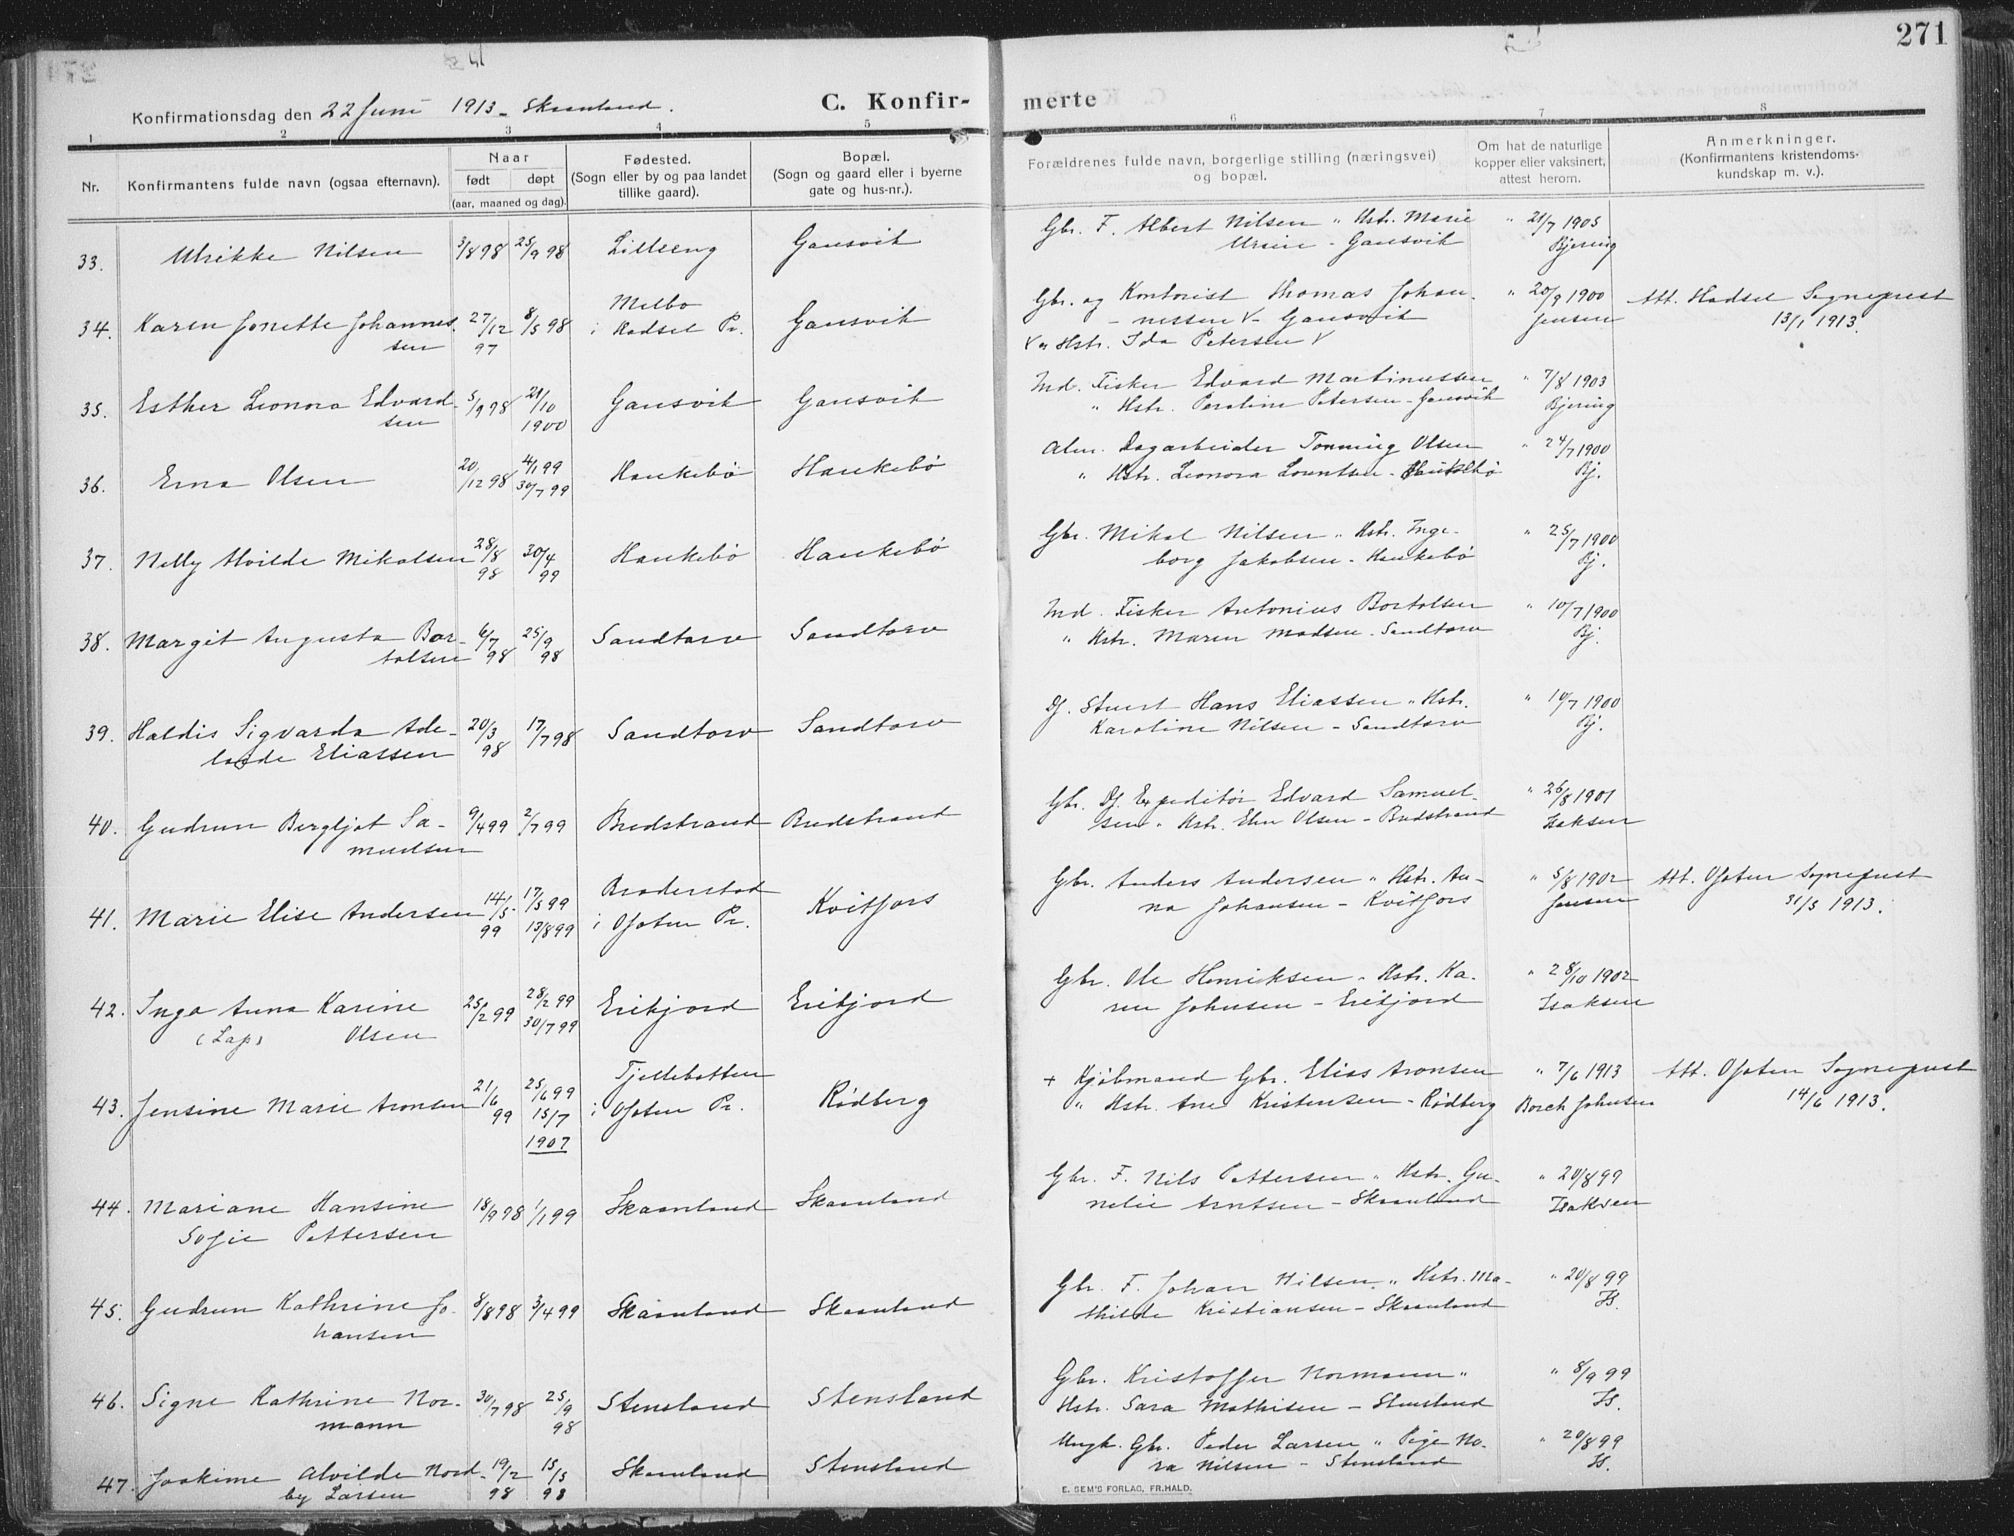 271
Konfirmationsdag den 22 Juni 1913 - Skaanland.
C. Konfir- merte
1 2 3 4 5 6 7 8
Nr.
Konfirmantens fulde navn (ogsaa efternavn).
Naar
født døpt
(aar, maaned og dag).
Fødested.
(Sogn eller by og paa landet
tillike gaard).
Bopæl.
(Sogn og gaard eller i byerne
gate og hus-nr.).
Forældrenes fulde navn, borgerlige stilling (næringsvei)
og bopæl.
Om hat de naturlige
kopper eller vaksinert,
attest herom.
Anmerkninger.
(Konfirmantens kristendoms-
kundskap m. v.).
33. Ulrikke Nilsen 3/8 98 25/9 98 Lilleeng Gansvik
Gbr. F. Albert Nilsen " Hstr. Marie " 21/7 1905
Ursin - Gansvik Bjering
34. Karen Jonette Johannes- 27/12 97 8/5 98 Melbo Gansvik
sen i Hadsel Pr.
Gbr. og Kontorist Thomas Johan- " 20/9 1900 Att. Hadsel Sogneprest
nessen V - Gansvik Jensen 13/1 1913.
V " Hstr. Ida Petersen V
35. Esther Leonora Edvard- 5/9 98 21/10 1900 Gansvik Gansvik
sen
Ind. Fisker Edvard Martinussen " 7/8 1903
" Hstr. Petersen - Gansvik Bjering
36. Erna Olsen 20/12 98 4/1 99 30/7 99 Haukebø Haukebø
Alm. Dagarbeider Tonning Olsen " 24/7 1900
" Hstr. Leonora Lorentsen - Haukebø Bj.
37. Nelly Alvilde Mikalsen 28/8 98 30/4 99 Haukebø Haukebø
Gbr. Mikal Nilsen " Hstr. Inge- " 25/7 1900
borg Jakobsen - Haukebø Bj.
38. Margit Augusta Bor- 6/7 98 25/9 98 Sandtorv Sandtorv
tolsen
Ind. Fisker Antonius Bortolsen " 10/7 1900
" Hstr. Maren Madsen - Sandtorv Bj.
39. Haldis Sigvarda Ade- 20/3 98 17/7 98 Sandtorv Sandtorv
laide Eliassen
Df. Stuert Hans Eliassen " Hstr. " 10/7 1900
Karoline Nilsen - Sandtorv Bj.
40. Gudrun Bergljot Sa- 9/4 99 2/7 99 Bredstrand Bredstrand
muelsen
Gbr. Df. Expeditør Edvard Samuel- " 26/8 1901
sen " Hstr. Elen Olsen - Bredstrand Isaksen
41. Marie Elise Andersen 14/5 99 17/5 99 13/8 99 Braderstad Kvitfors
i Ofoten Pr.
Gbr. Anders Andersen " Hstr. An- " 5/8 1902 Att. Ofoten Sogneprest
na Johansen - Kvitfors Jensen 31/5 1913.
42. Inga Anna Karine 25/2 99 28/2 99 30/7 99 Erikjord Erikjord
(Lap) Olsen
Gbr. Ole Henriksen " Hstr. Ka- " 28/10 1902
ren Johnsen - Erikjord Isaksen
43. Jensine Marie Aronsen 21/6 99 25/6 99 15/7 1907 Tjellebotten Rødberg
i Ofoten Pr.
+ Kjøbmand Gbr. Elias Aronsen " 7/6 1913 Att. Ofoten Sogneprest
" Hstr. Ane Kristensen - Rødberg Borch Johnsen 14/6 1913.
44. Mariane Hansine 18/9 98 1/1 99 Skaanland Skaanland
Sofie Pettersen
Gbr. F. Nils Pettersen " Hstr. Gu- " 20/8 99
nelie Arntsen - Skaanland Isaksen
45. Gudrun Kathrine Jo- 8/8 98 3/4 99 Skaanland Skaanland
hansen
Gbr. F. Johan Nilsen " Hstr. Ma- " 20/8 99
thilde Kristiansen - Skaanland Is.
46. Signe Kathrine Nor- 30/7 98 25/9 98 Stensland Stensland
mann
Gbr. Kristoffer Normann " " 8/9 99
Hstr. Sara Mathisen - Stensland Is.
47. Joakime Alvilde Nord- 19/2 98 15/5 98 Skaanland Stensland
by Larsen
Ungk. Gbr. Peder Larsen " Pige No- " 20/8 99
ra Nilsen - Stensland Is.
E. SEM'S FORLAG, FR.HALD.